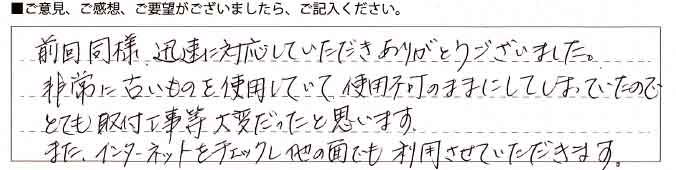 ■ご意見、ご感想、ご要望がございましたら、ご記入ください。
前回同様、迅速に対応していただきありがとうございました。
非常に古いものを使用していて、使用不可のままにしてしまっていたので
とても取付工事等大変だったと思います。
また、インターネットをチェックし他の面でも利用させていただきます。